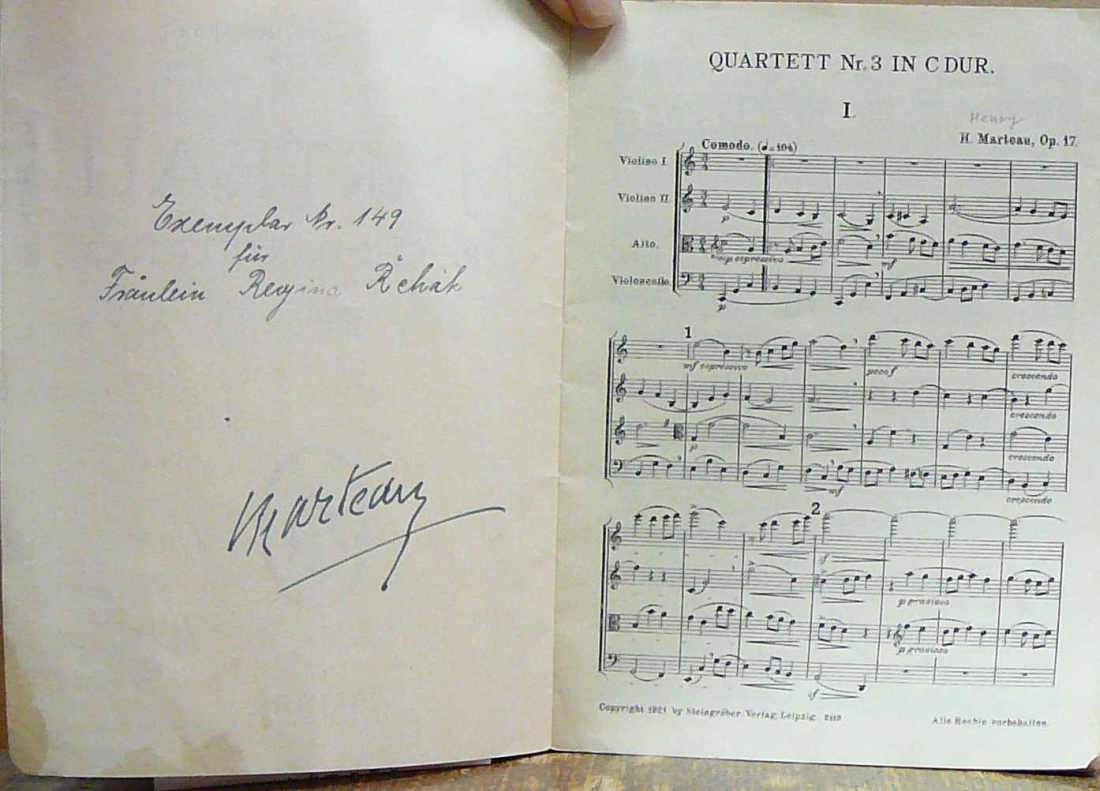 Exemplar Nr. 149
für
Fräulein Regina Řehák
Marteau
QUARTETT Nr. 3 IN C DUR.
I.
Henry
H. Marteau, Op. 17.
Comodo. (♩=104)
Violino I.
Violino II.
Alto.
Violoncello.
p
mp espressivo
mf
p
1
mf espressivo
poco f
crescendo
crescendo
p
crescendo
mf
crescendo
2
f
p grazioso
p grazioso
sf
Copyright 1921 by Steingräber Verlag, Leipzig.
Alle Rechte vorbehalten.